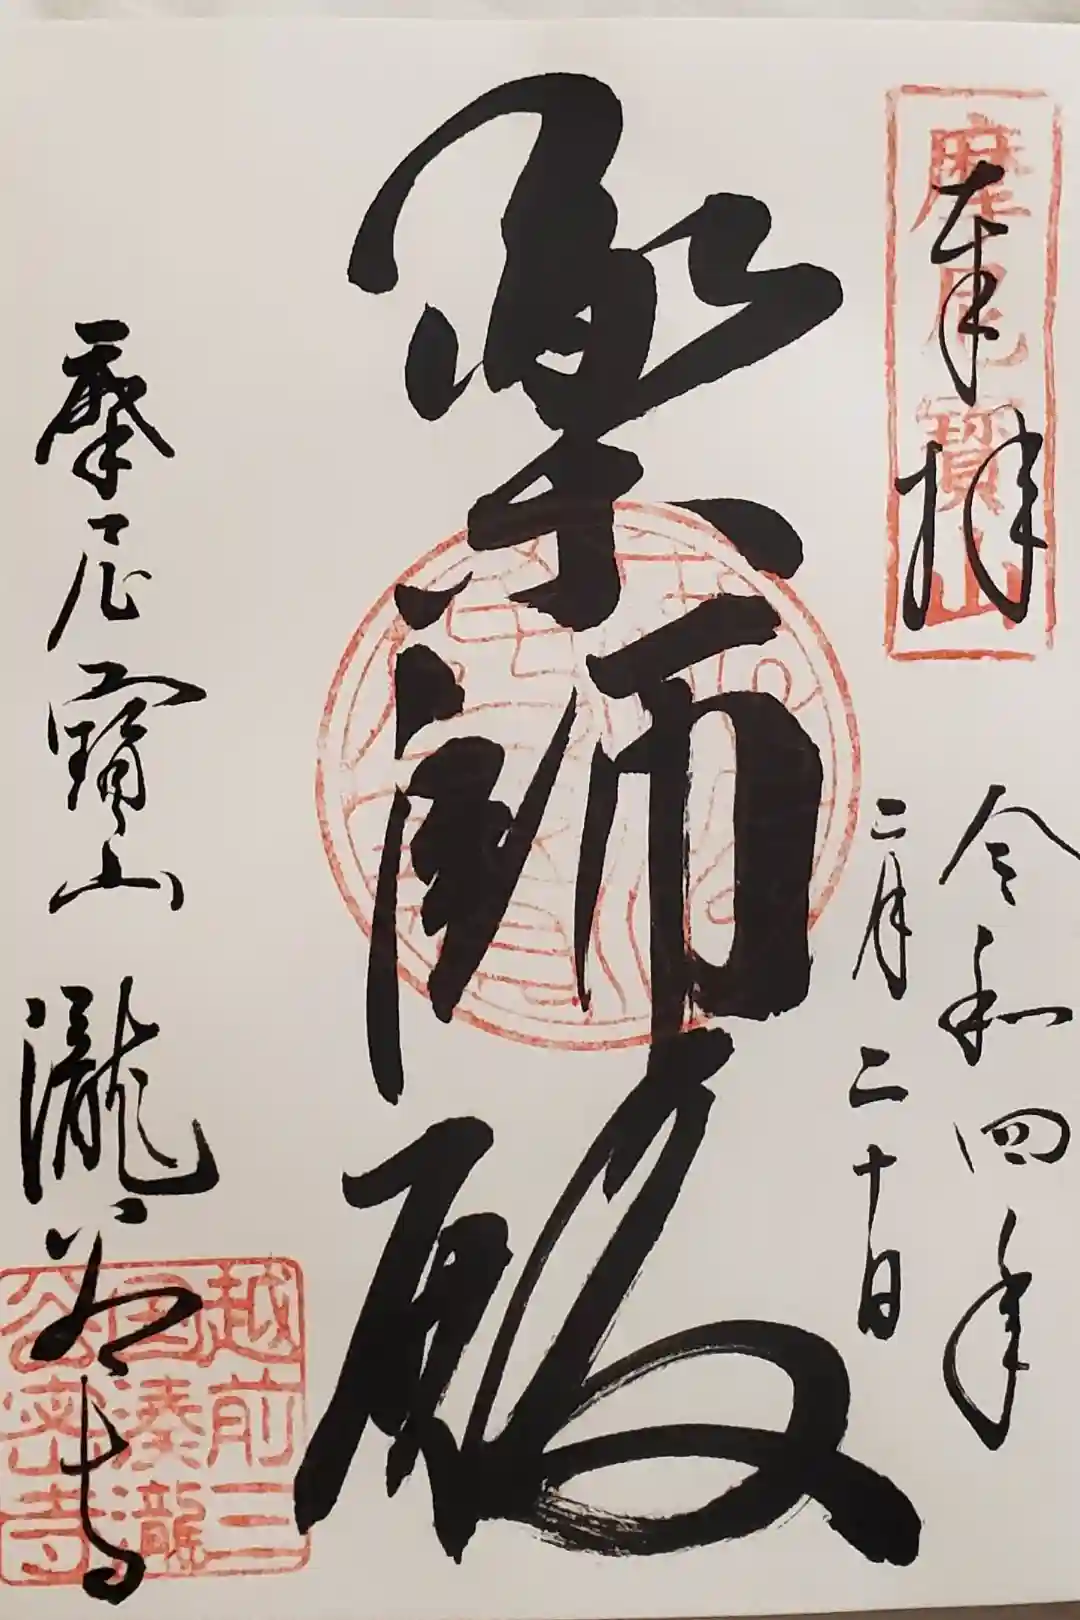 奉拝
摩尼寳山
令和四年
二月二十日
薬師殿
摩尼寳山 瀧谷寺
越前三
国湊瀧
谷密寺